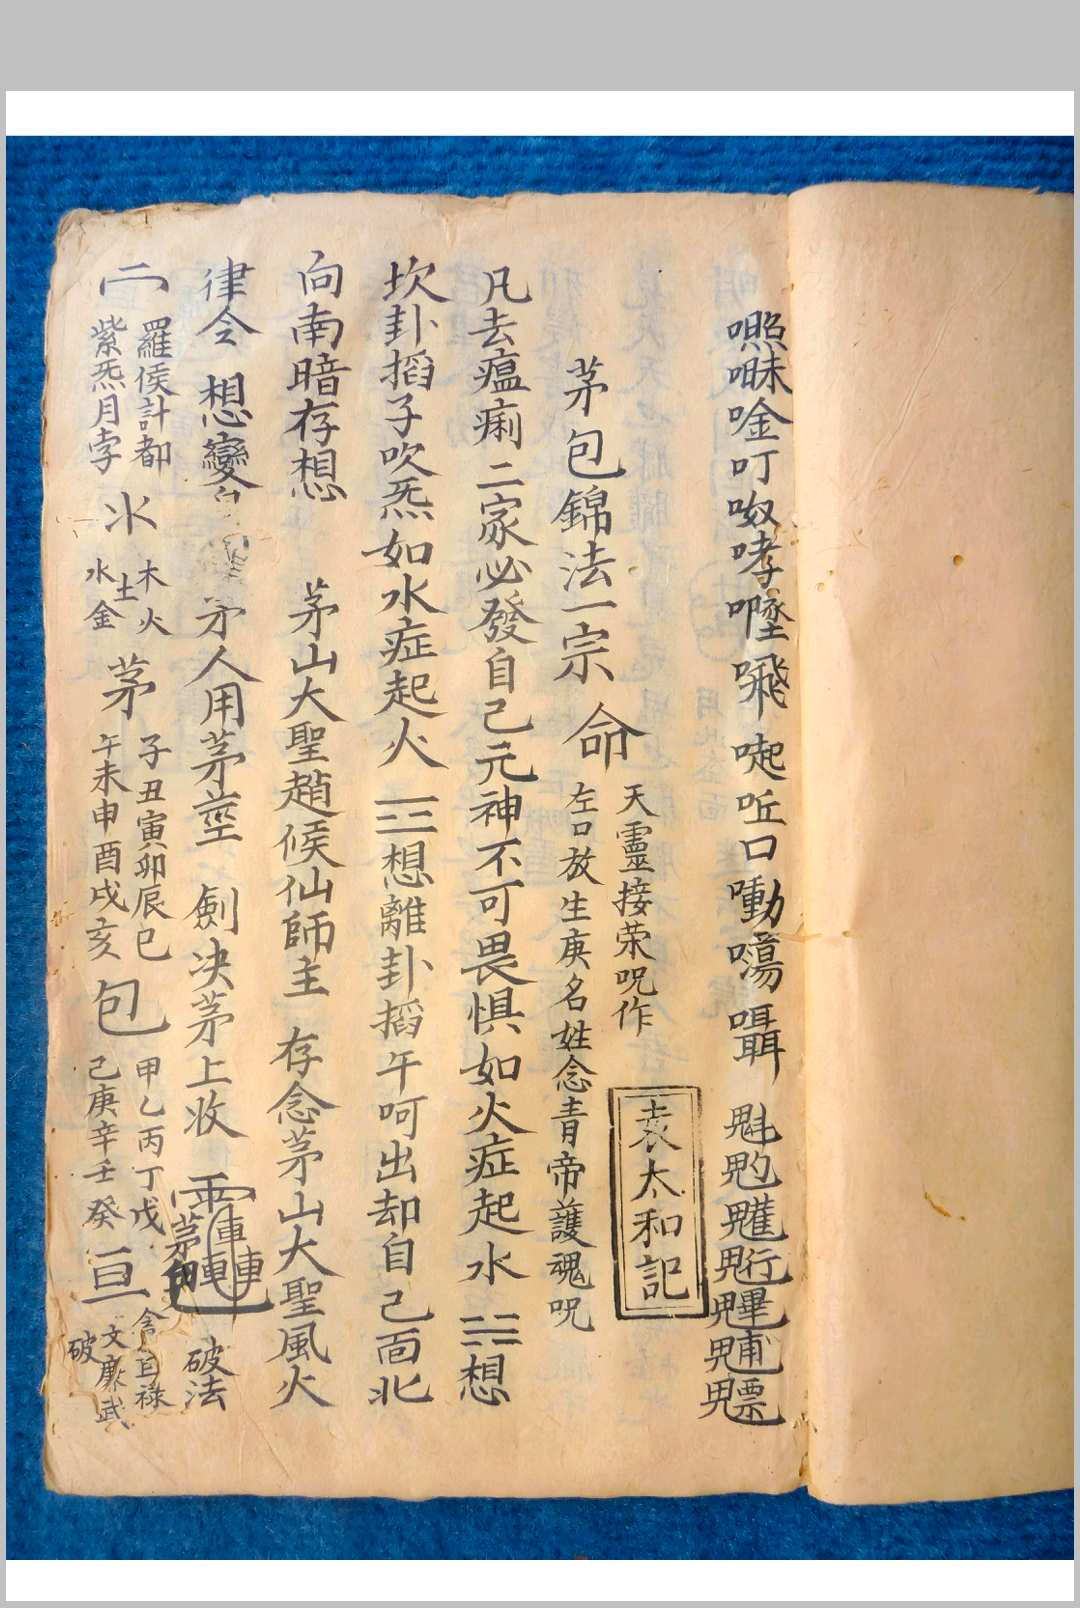 唫叮呶哮 𠰻口嘞囁
茅包錦法一宗 命
天靈接荣呪作
左口放生庚名姓念青帝護魂呪
袁太和記
凡去瘟痢二家必發自己元神不可畏惧如火症起水 ☵想
坎卦搯子吹炁如水症起火 ☲想離卦搯午呵出却自己面北
向南暗存想 茅山大聖趙候仙師主 存念茅山大聖風火
律令 想變 茅人用茅𦯬 劍决茅上收 破法
二
羅侯計都
紫炁月孛
氺
木火
土
水金
茅
子丑寅卯辰巳
午未申酉戌亥
包
甲乙丙丁戊
己庚辛壬癸
亘
貪巨禄
文廉武
破